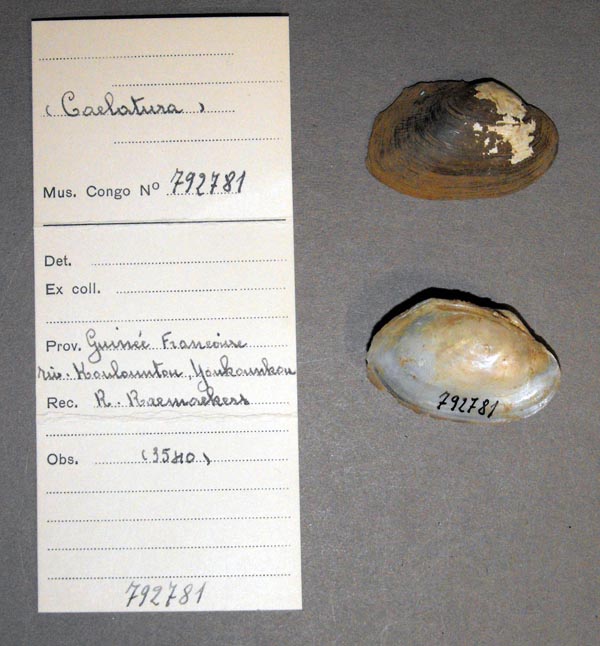 (Caelatura)
Mus. Congo Nº 792781
Det.
Ex coll.
Prov. Guinée Francaise
riv. Kouloumtou, Youkounkou
Rec. R. Raemaekers
Obs. (3540)
792781
792781